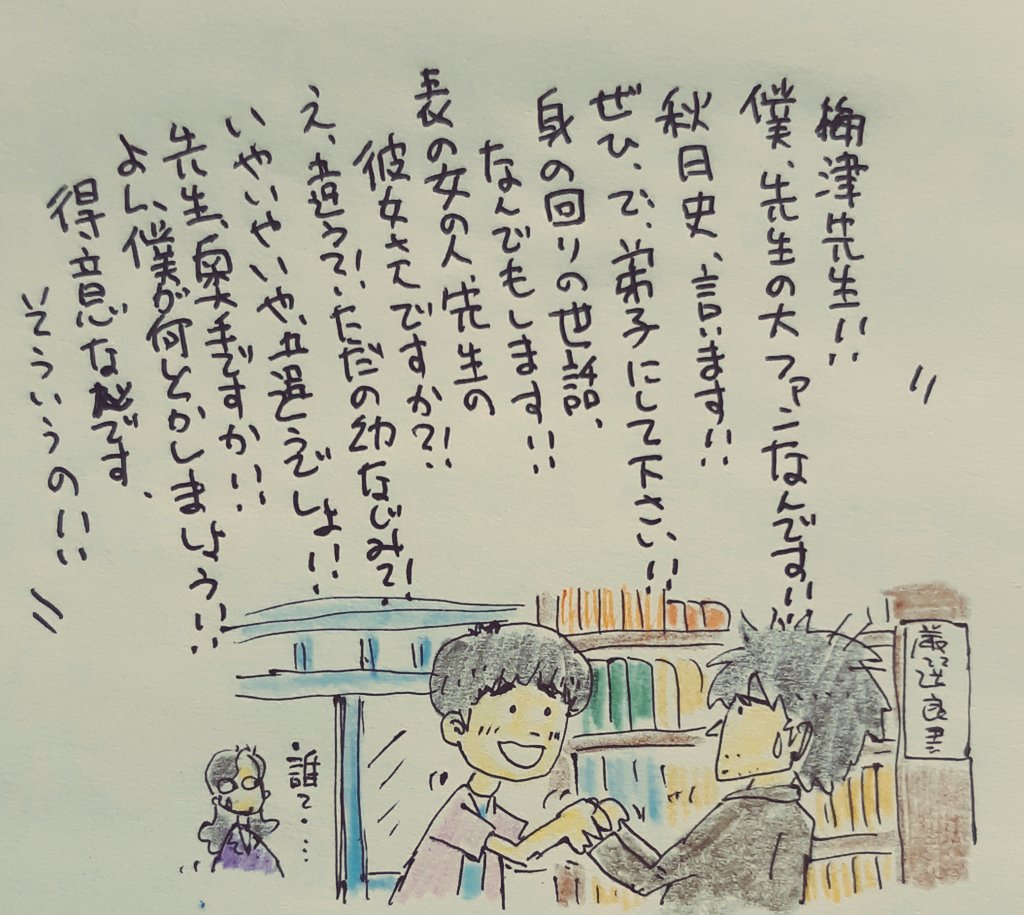 梅津先生!!
僕、先生の大ファンなんです!!
秋日史、言います!!
ぜひ、で、弟子にして下さい!!
身の回りの世話、
なんでもします!!
表の女の人、先生の
彼女さんですか?!
え、違うて!ただの幼なじみて!
いやいやいや、違うでしょ!!
先生、奥手ですか!!
よし、僕が何とかしましょう!!
得意なんです、
そういうの!!
厳選良書
誰て…